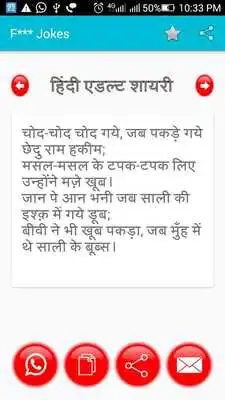 4G 50% 10:33 PM
F*** Jokes
हिंदी एडल्ट शायरी
चोद-चोद चोद गये, जब पकड़े गये
छेदु राम हकीम;
मसल-मसल के टपक-टपक लिए
उन्होंने मज़े खूब।
जान पे आन भनी जब साली की
इश्क़ में गये डूब;
बीवी ने भी खूब पकड़ा, जब मुँह में
थे साली के बूब्स।